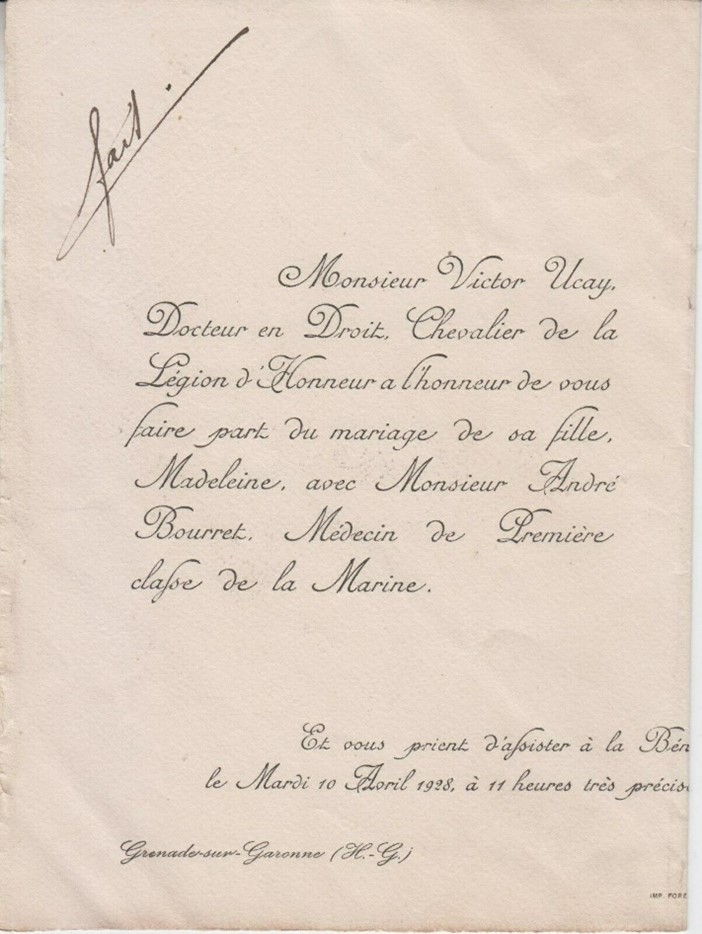 fait.
Monsieur Victor Ucay,
Docteur en Droit, Chevalier de la
Légion d'Honneur a l'honneur de vous
faire part du mariage de sa fille,
Madeleine, avec Monsieur André
Bourret, Médecin de Première
classe de la Marine.
Et vous prient d'assister à la Bén
le Mardi 10 Avril 1928, à 11 heures très précis
Grenade-sur-Garonne (H.-G.)
IMP. FORE